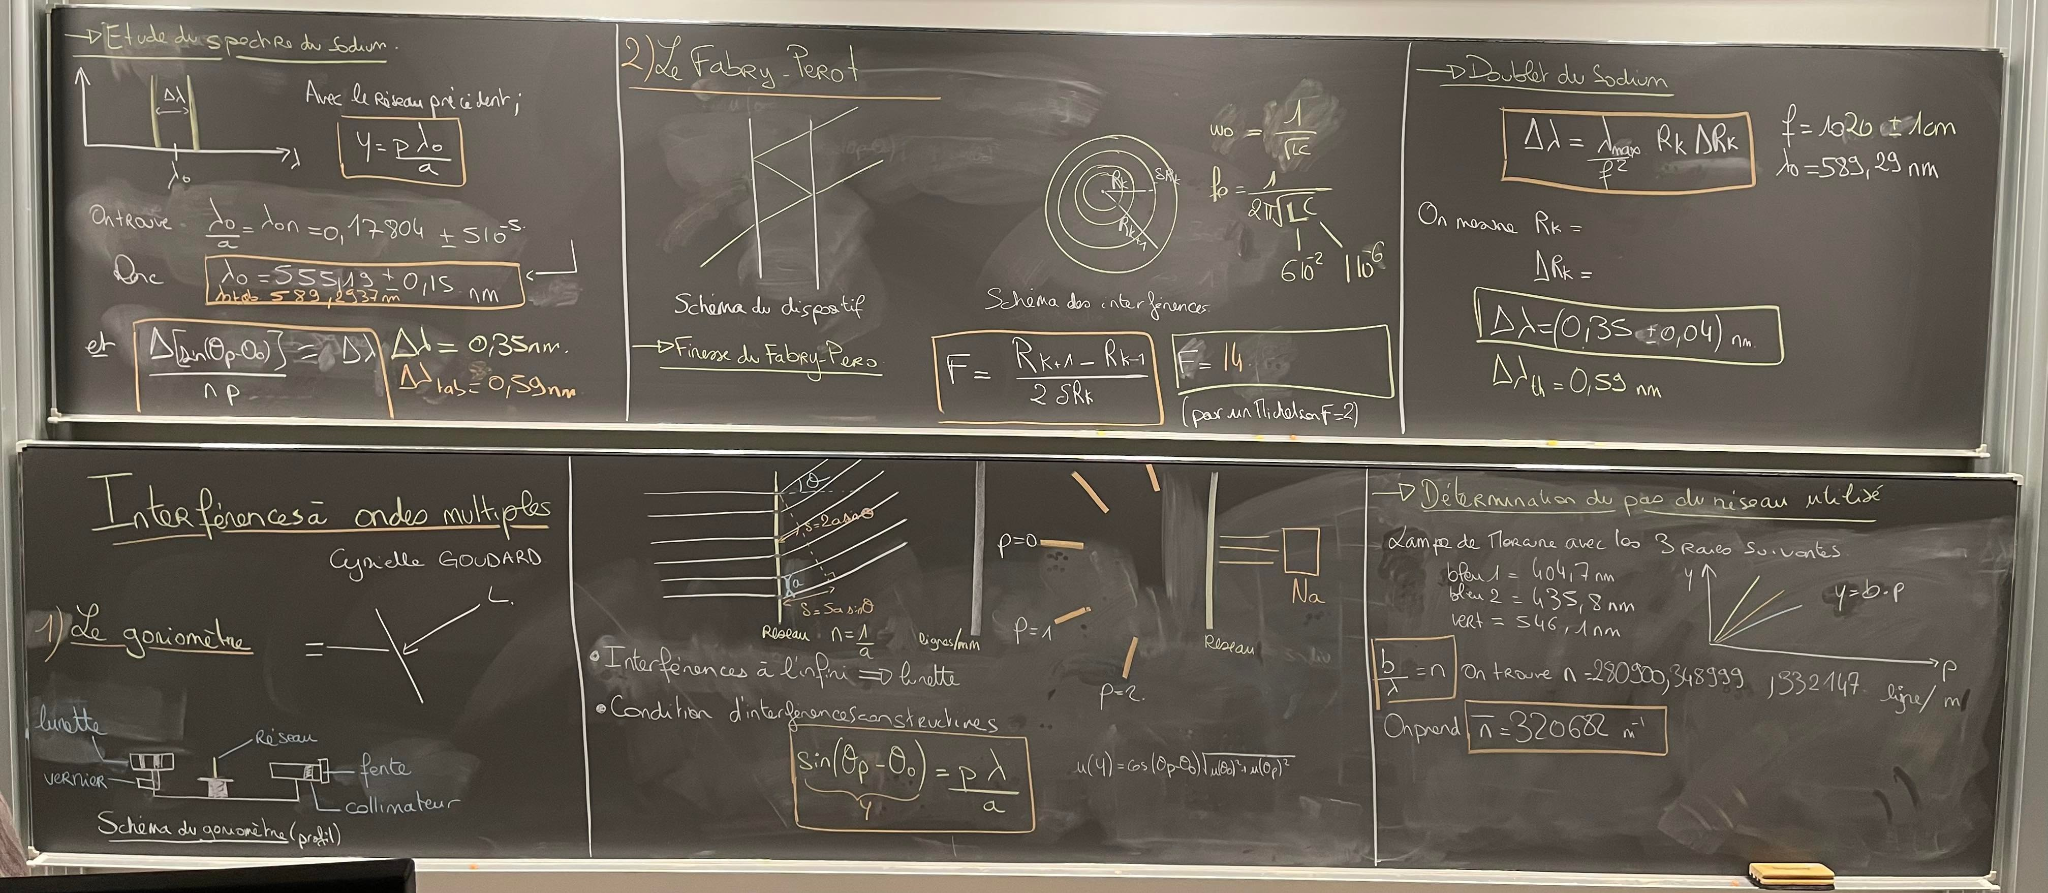 → Etude du spectre du Sodium.
Δλ
λ
λ₀
Avec le Réseau précédent;
y = p λ₀/a
On trouve λ₀/a = λ₀n = 0,17804 ± 5 10⁻⁵
Donc λ₀ = 555,19 ± 0,15 nm
589,2937nm
et Δ[sin(θp-θ₀)]/np = Δλ
Δλ = 0,35 nm.
Δλ tab = 0,59 nm
2) Le Fabry-Perot
Schéma du dispositif
Rk
δRk
Rk+1
Schéma des interférences
ω₀ = 1/√LC
f₀ = 1/2π√LC
6 10⁻²
1 10⁻⁶
→ Finesse du Fabry-Pero
F = (Rk+1 - Rk-1)/2 δRk
F = 14
(pour un Michelson F=2)
→ Doublet du Sodium
Δλ = λmax/f² Rk ΔRk
f = 1020 ± 1cm
λ₀ = 589,29 nm
On mesure Rk =
ΔRk =
Δλ = (0,35 ± 0,04) nm
Δλth = 0,59 nm
Interférences à ondes multiples
Cyrielle GOUDARD
1) Le goniomètre
L.
lunette
vernier
Réseau
fente
collimateur
Schéma du goniomètre (profil)
θ
δ=2a sinθ
a
δ = 5a sinθ
Réseau n = 1/a lignes/mm
• Interférences à l'infini ⇒ lunette
• Condition d'interférences constructives
sin(θp - θ₀) = p λ/a
y
p=0
p=1
p=2
Réseau
Na
u(y) = cos(θp-θ₀) √(u(θ₀)² + u(θp)²)
→ Détermination du pas du réseau utilisé
Lampe de Mercure avec les 3 Raies Suivantes
bleu 1 = 404,7 nm
bleu 2 = 435,8 nm
vert = 546,1 nm
y
y = b.p
p
b/λ = n On trouve n = 280900, 348999, 332147 ligne/m
On prend n̄ = 320682 m⁻¹